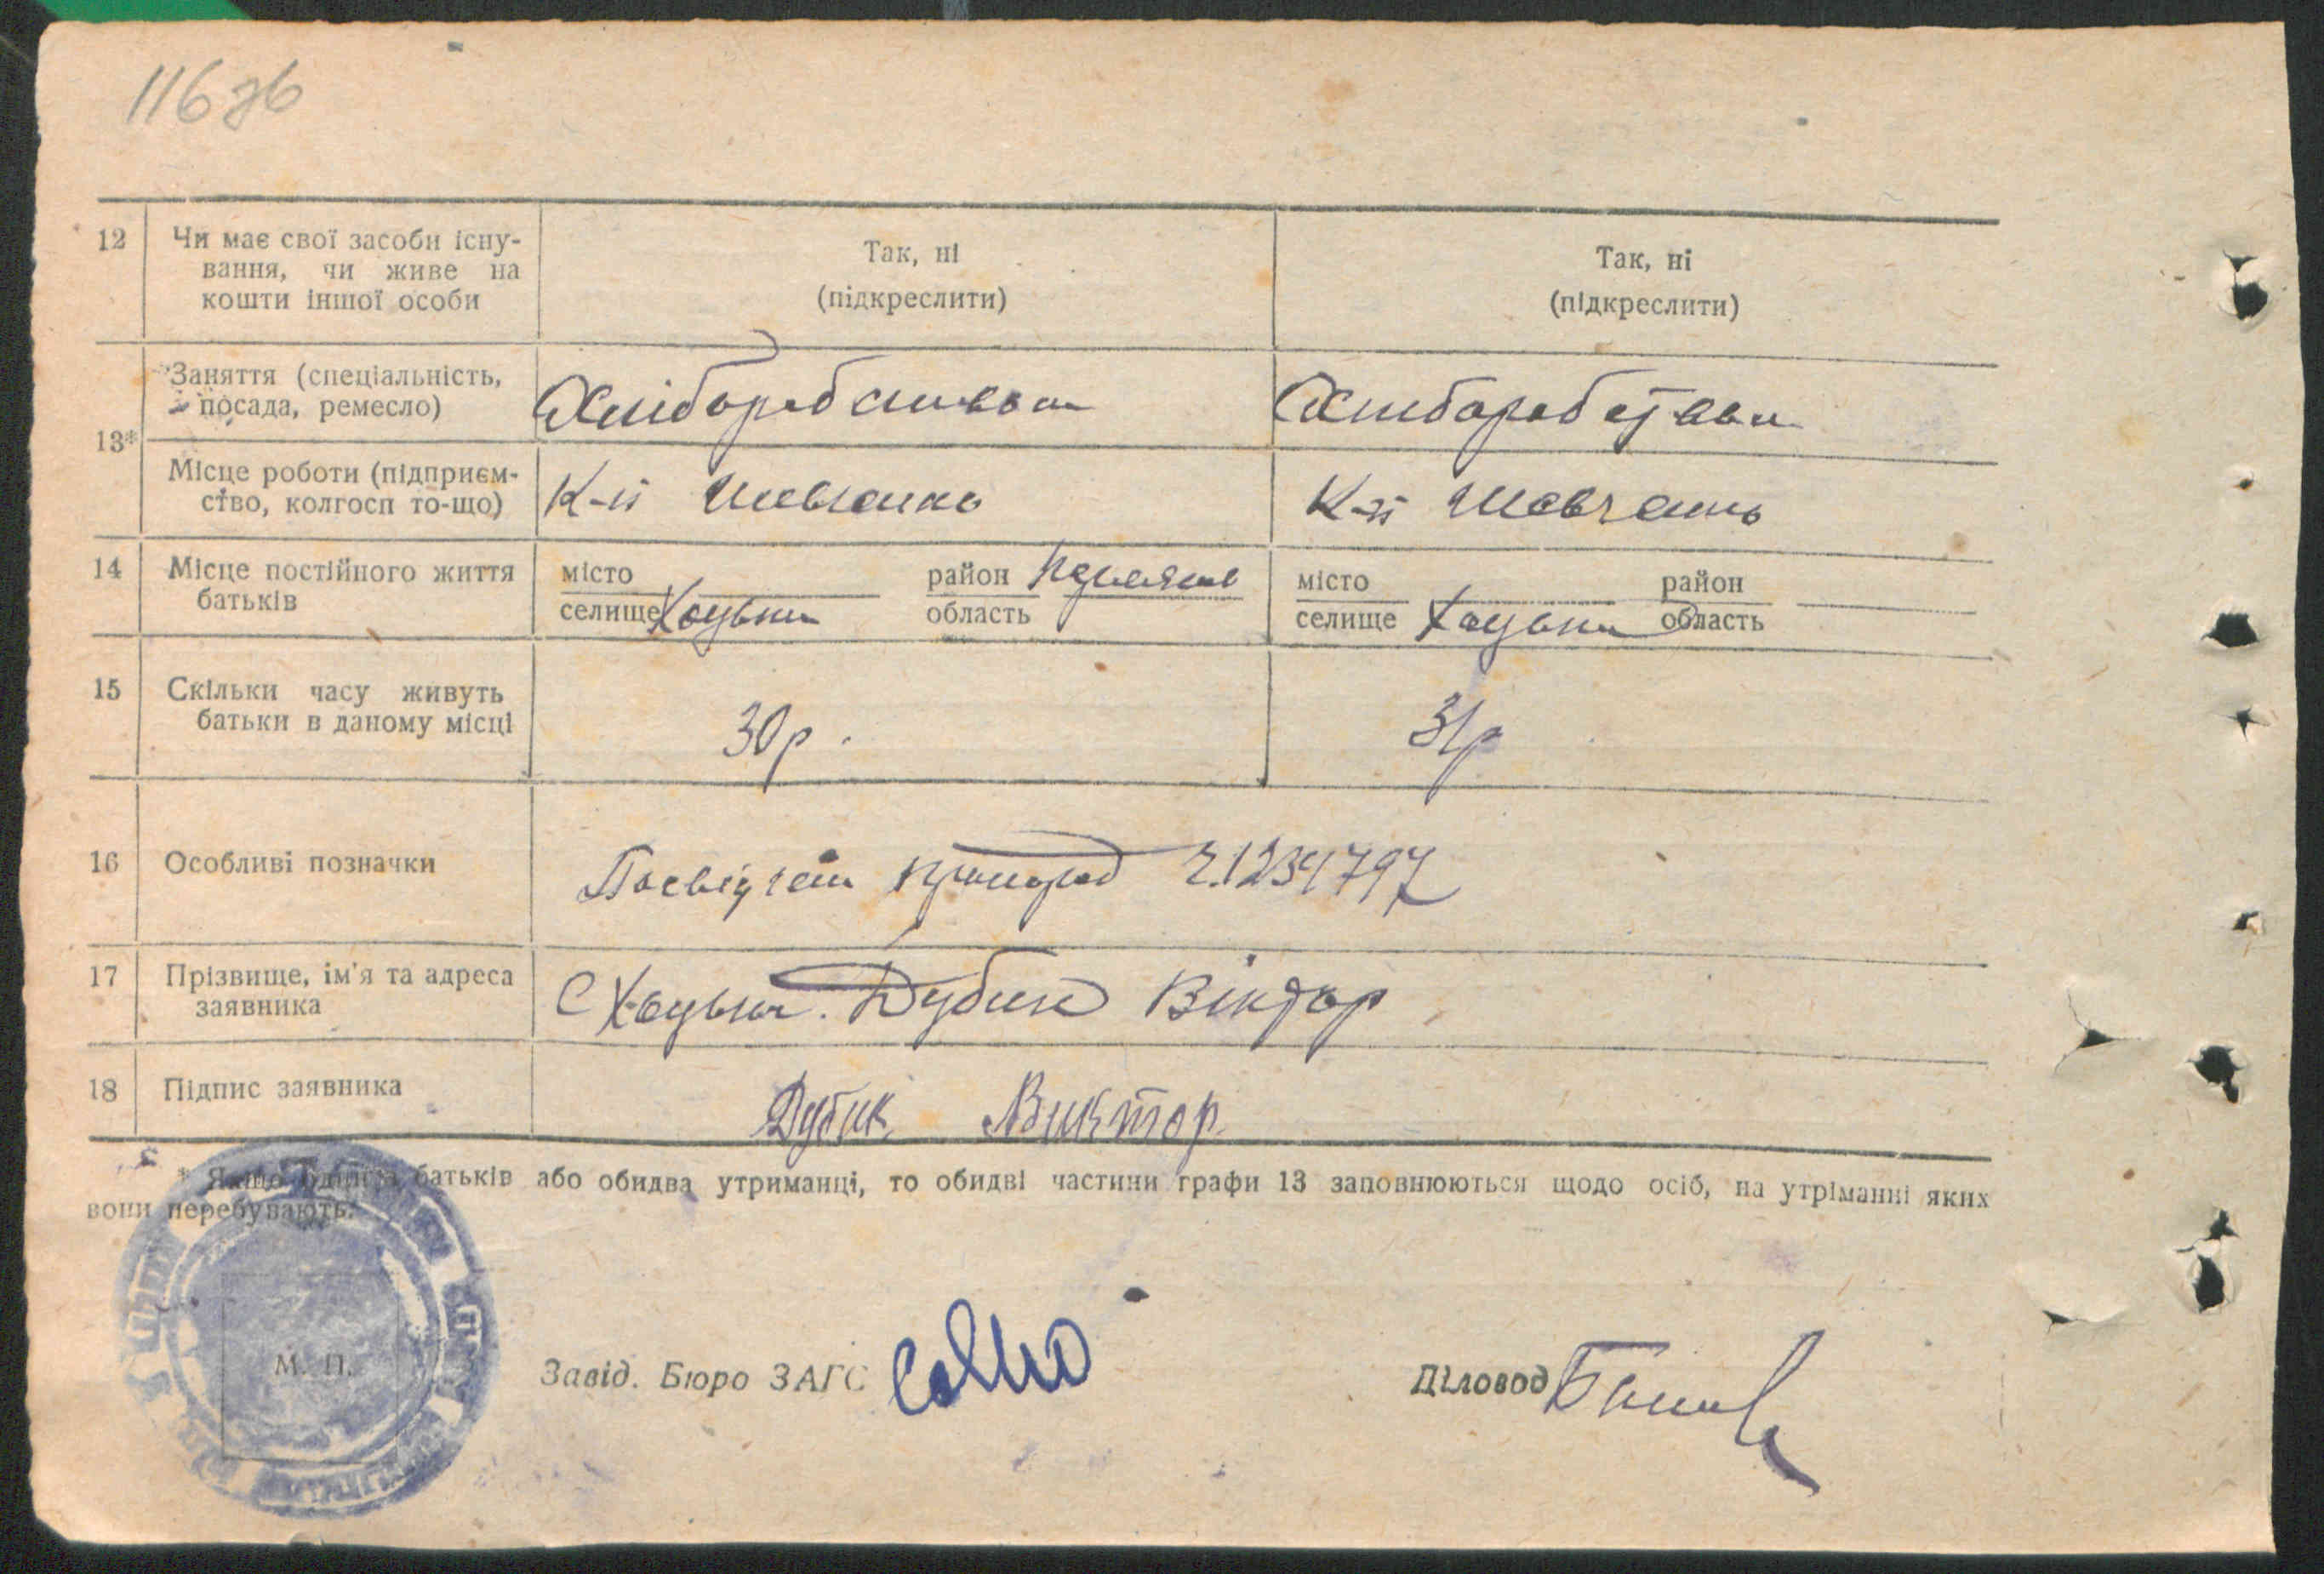 116зв
12 Чи має свої засоби існу-
вання, чи живе на
кошти іншої особи
Так, ні
(підкреслити)
Так, ні
(підкреслити)
13*
Заняття (спеціальність,
посада, ремесло)
Хліборобство
Хліборобство
Місце роботи (підприєм-
ство, колгосп то-що)
К-п Шевченко
К-п Шевченко
14 Місце постійного життя
батьків
місто
селище Хоцьки
район
область
місто
селище Хоцьки
район
область
15 Скільки часу живуть
батьки в даному місці
30р.
31р
16 Особливі позначки
Посвідчен ч.1234797
17 Прізвище, ім'я та адреса
заявника
С Хоцьки. Дубик Віктор
18 Підпис заявника
Дубик Виктор
* Якщо один із батьків або обидва утриманці, то обидві частини графи 13 заповнюються щодо осіб, на утріманні яких
вони перебувають.
М. П.
Завід. Бюро ЗАГС
Діловод